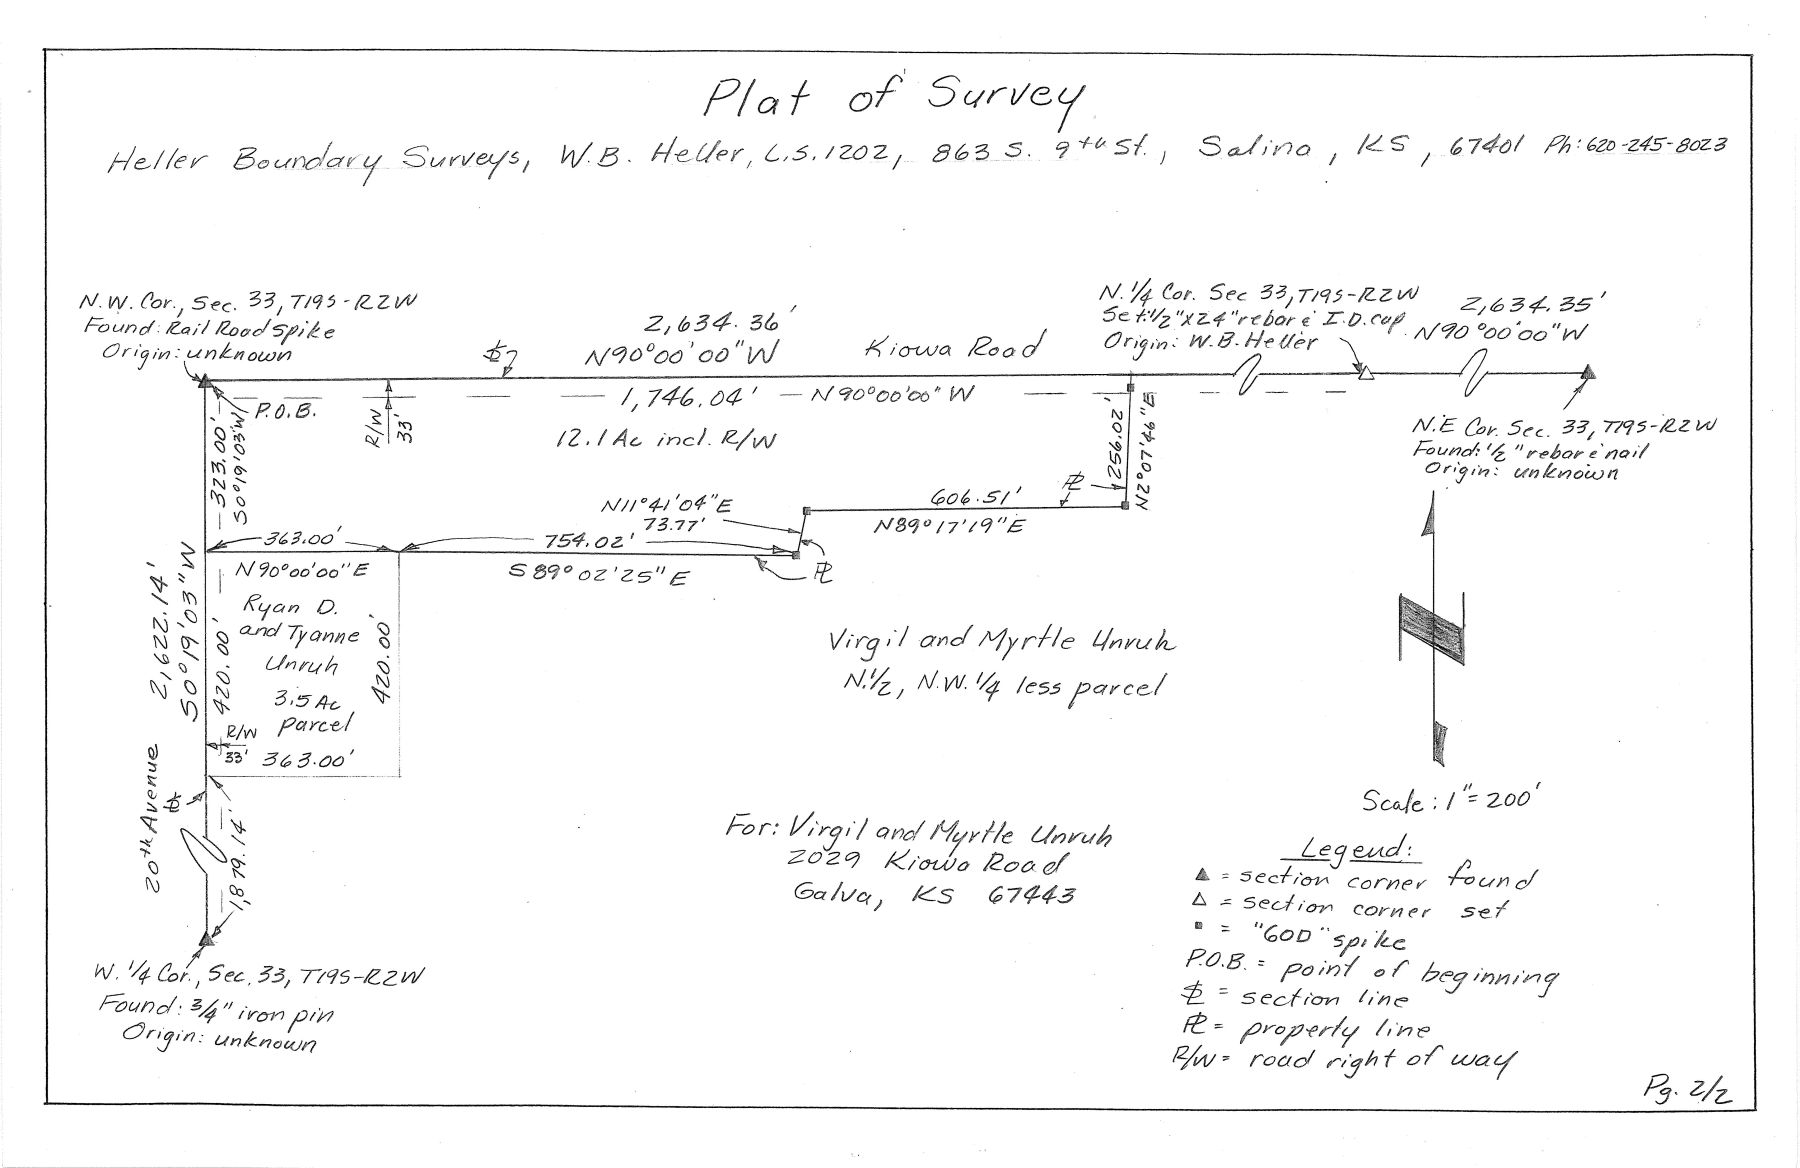 Plat of Survey
Heller Boundary Surveys, W.B. Heller, L.S. 1202, 863 S. 9th St., Salina, KS, 67401 Ph: 620-245-8023
N.W. Cor., Sec. 33, T19S-R2W
Found: Rail Road Spike
Origin: unknown
2,634.36'
N90°00'00"W
Kiowa Road
N. 1/4 Cor. Sec 33, T19S-R2W
Set: 1/2" x 24" rebar & I.D. cap
Origin: W.B. Heller
2,634.35'
N90°00'00"W
P.O.B.
R/W
33'
1,746.04' — N90°00'00"W
12.1 Ac incl. R/W
323.00'
S0°19'03"W
256.02'
N2°07'46"E
N.E Cor. Sec. 33, T19S-R2W
Found: 1/2" rebar & nail
Origin: unknown
N11°41'04"E
73.77'
606.51'
N89°17'19"E
PL
363.00'
N90°00'00"E
754.02'
S89°02'25"E
PL
Ryan D.
and Tyanne
Unruh
3.5 Ac
parcel
420.00'
420.00'
R/W
33'
363.00'
2,622.14'
S0°19'03"W
20th Avenue
1,879.14'
Virgil and Myrtle Unruh
N.1/2, N.W. 1/4 less parcel
W. 1/4 Cor., Sec. 33, T19S-R2W
Found: 3/4" iron pin
Origin: unknown
For: Virgil and Myrtle Unruh
2029 Kiowa Road
Galva, KS 67443
N
Scale: 1" = 200'
Legend:
▲ = section corner found
△ = section corner set
▪ = "60D" spike
P.O.B. = point of beginning
SL = section line
PL = property line
R/W = road right of way
Pg. 2/2